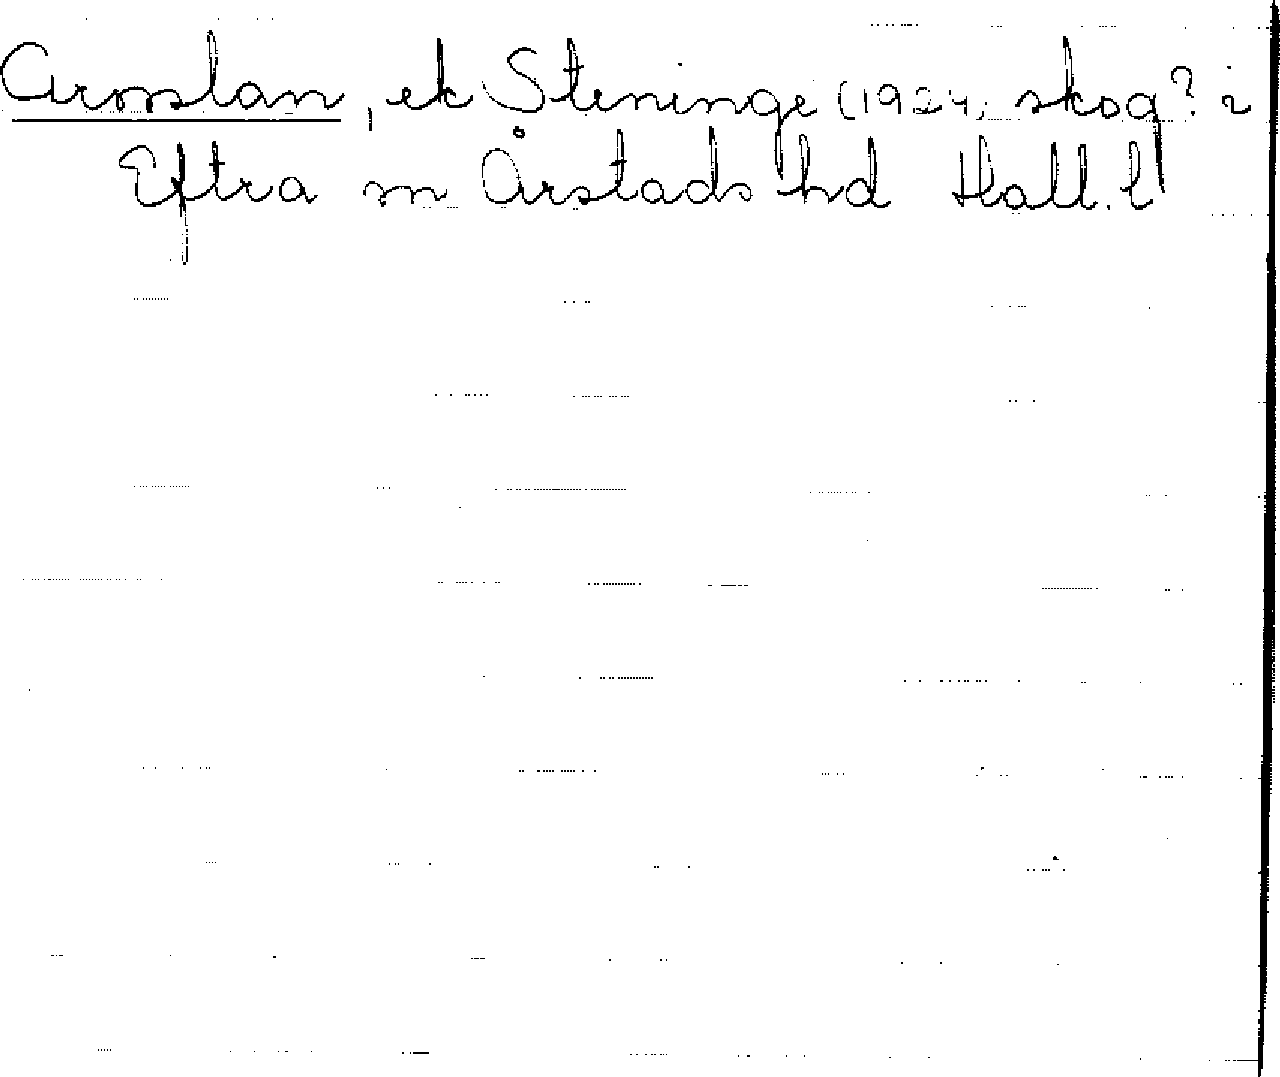 Arosslan, ek Steninge (1924; skog? i
Eftra sn Årstads hd Hall. l